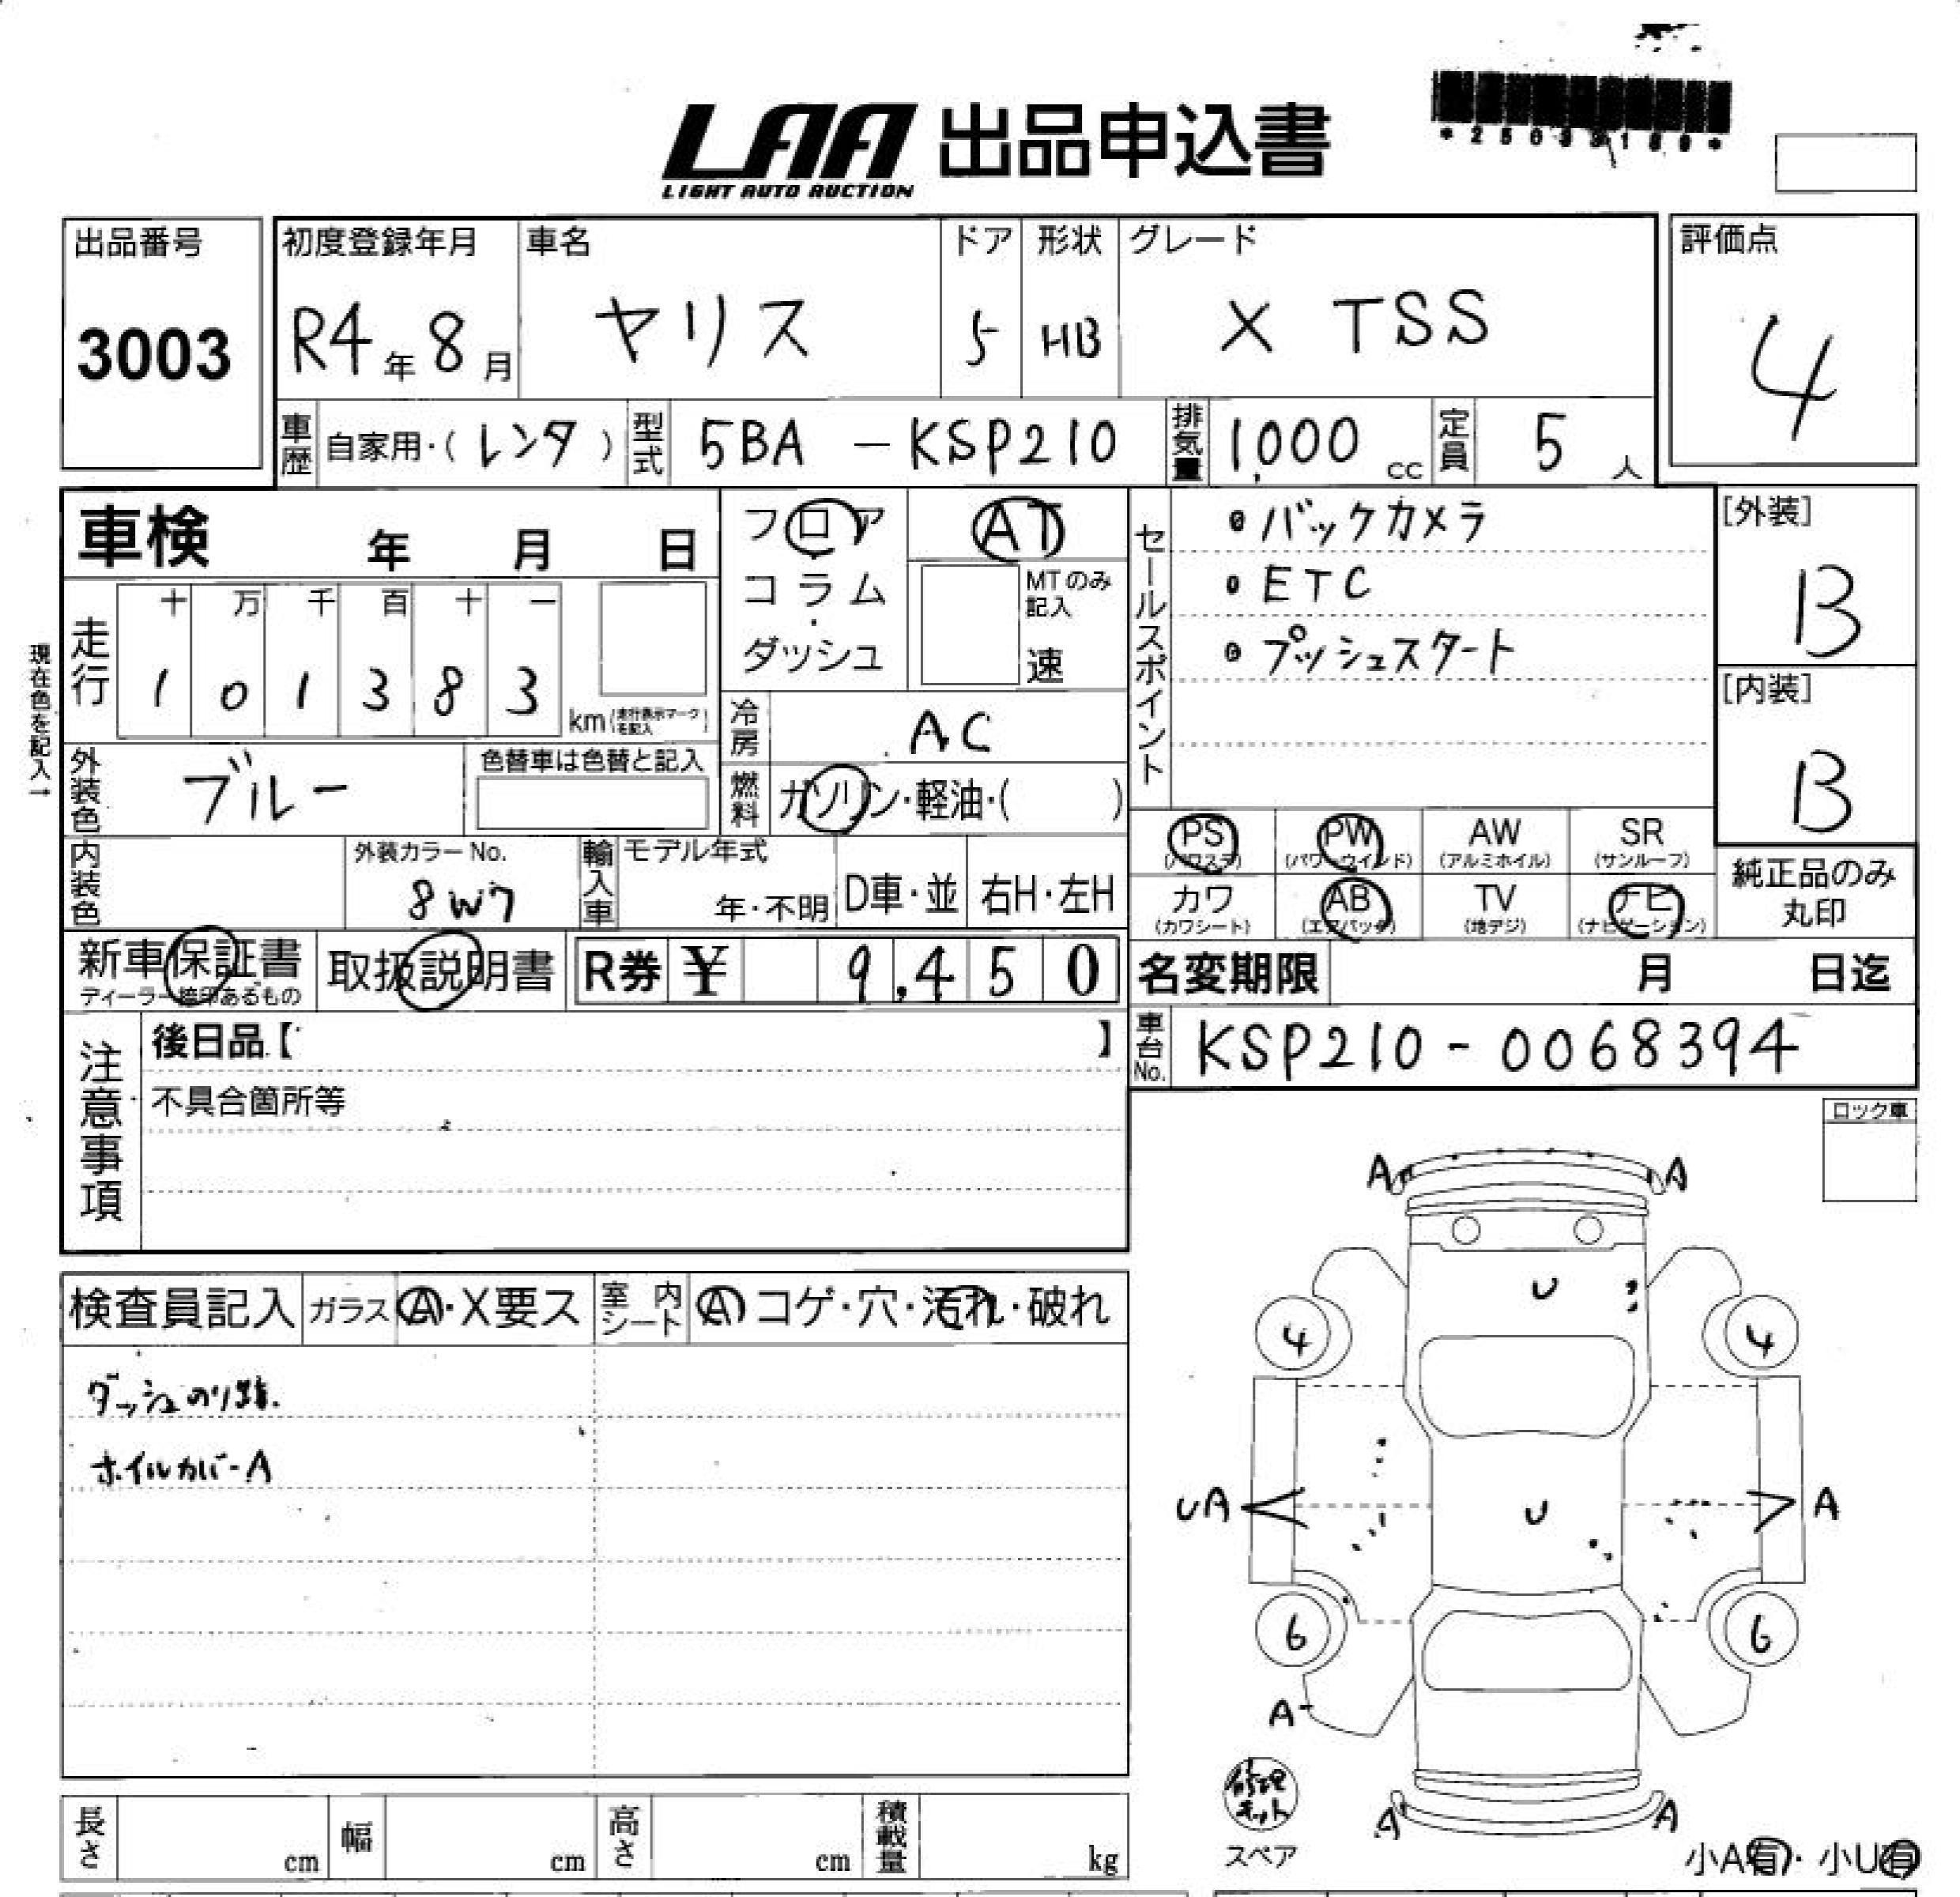 LAA 出品申込書
LIGHT AUTO AUCTION
出品番号
3003
初度登録年月
R4年8月
車名
ヤリス
ドア
5
形状
HB
グレード
X TSS
評価点
4
車歴 自家用・(レンタ)
型式 5BA - KSP210
排気量 1,000 cc
定員 5 人
車検 年 月 日
フロア・コラム・ダッシュ
AT
MTのみ記入
速
セールスポイント
・バックカメラ
・ETC
・プッシュスタート
[外装]
B
[内装]
B
現在色を記入→
走行
十 万 千 百 十 一
1 0 1 3 8 3
km(走行表示マークを記入)
冷房 AC
外装色 ブルー
色替車は色替と記入
燃料 ガソリン・軽油・( )
内装色
外装カラーNo.
8W7
輸入車
モデル年式
年・不明
D車・並
右H・左H
PS (パワステ)
PW (パワーウインド)
AW (アルミホイル)
SR (サンルーフ)
カワ (カワシート)
AB (エアバッグ)
TV (地デジ)
ナビ (ナビゲーション)
純正品のみ丸印
新車保証書
ディーラー捺印あるもの
取扱説明書
R券 ¥ 9,450
名変期限 月 日迄
車台No. KSP210-0068394
注意事項
後日品【 】
不具合箇所等
ロック車
検査員記入
ガラス A・X要ス
室内シート A コゲ・穴・汚れ・破れ
ダッシュのり跡.
ホイルカバーA
A A
U
4 4
UA U A
6 6
A
修理キット
スペア
A A
小A有・小U有
長さ cm
幅 cm
高さ cm
積載量 kg